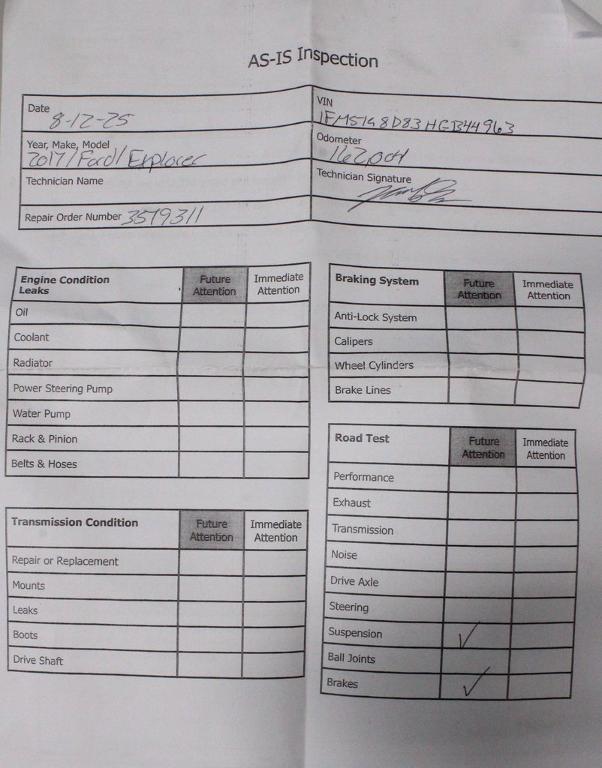 AS-IS Inspection
Date 8-12-25
VIN
Year, Make, Model 2017/Ford/Explorer
Odometer
Technician Name
Technician Signature
Repair Order Number 3579311
Engine Condition Leaks Future Attention Immediate Attention
Oil
Coolant
Radiator
Power Steering Pump
Water Pump
Rack & Pinion
Belts & Hoses
Transmission Condition Future Attention Immediate Attention
Repair or Replacement
Mounts
Leaks
Boots
Drive Shaft
Braking System Future Attention Immediate Attention
Anti-Lock System
Calipers
Wheel Cylinders
Brake Lines
Road Test Future Attention Immediate Attention
Performance
Exhaust
Transmission
Noise
Drive Axle
Steering
Suspension ✓
Ball Joints
Brakes ✓